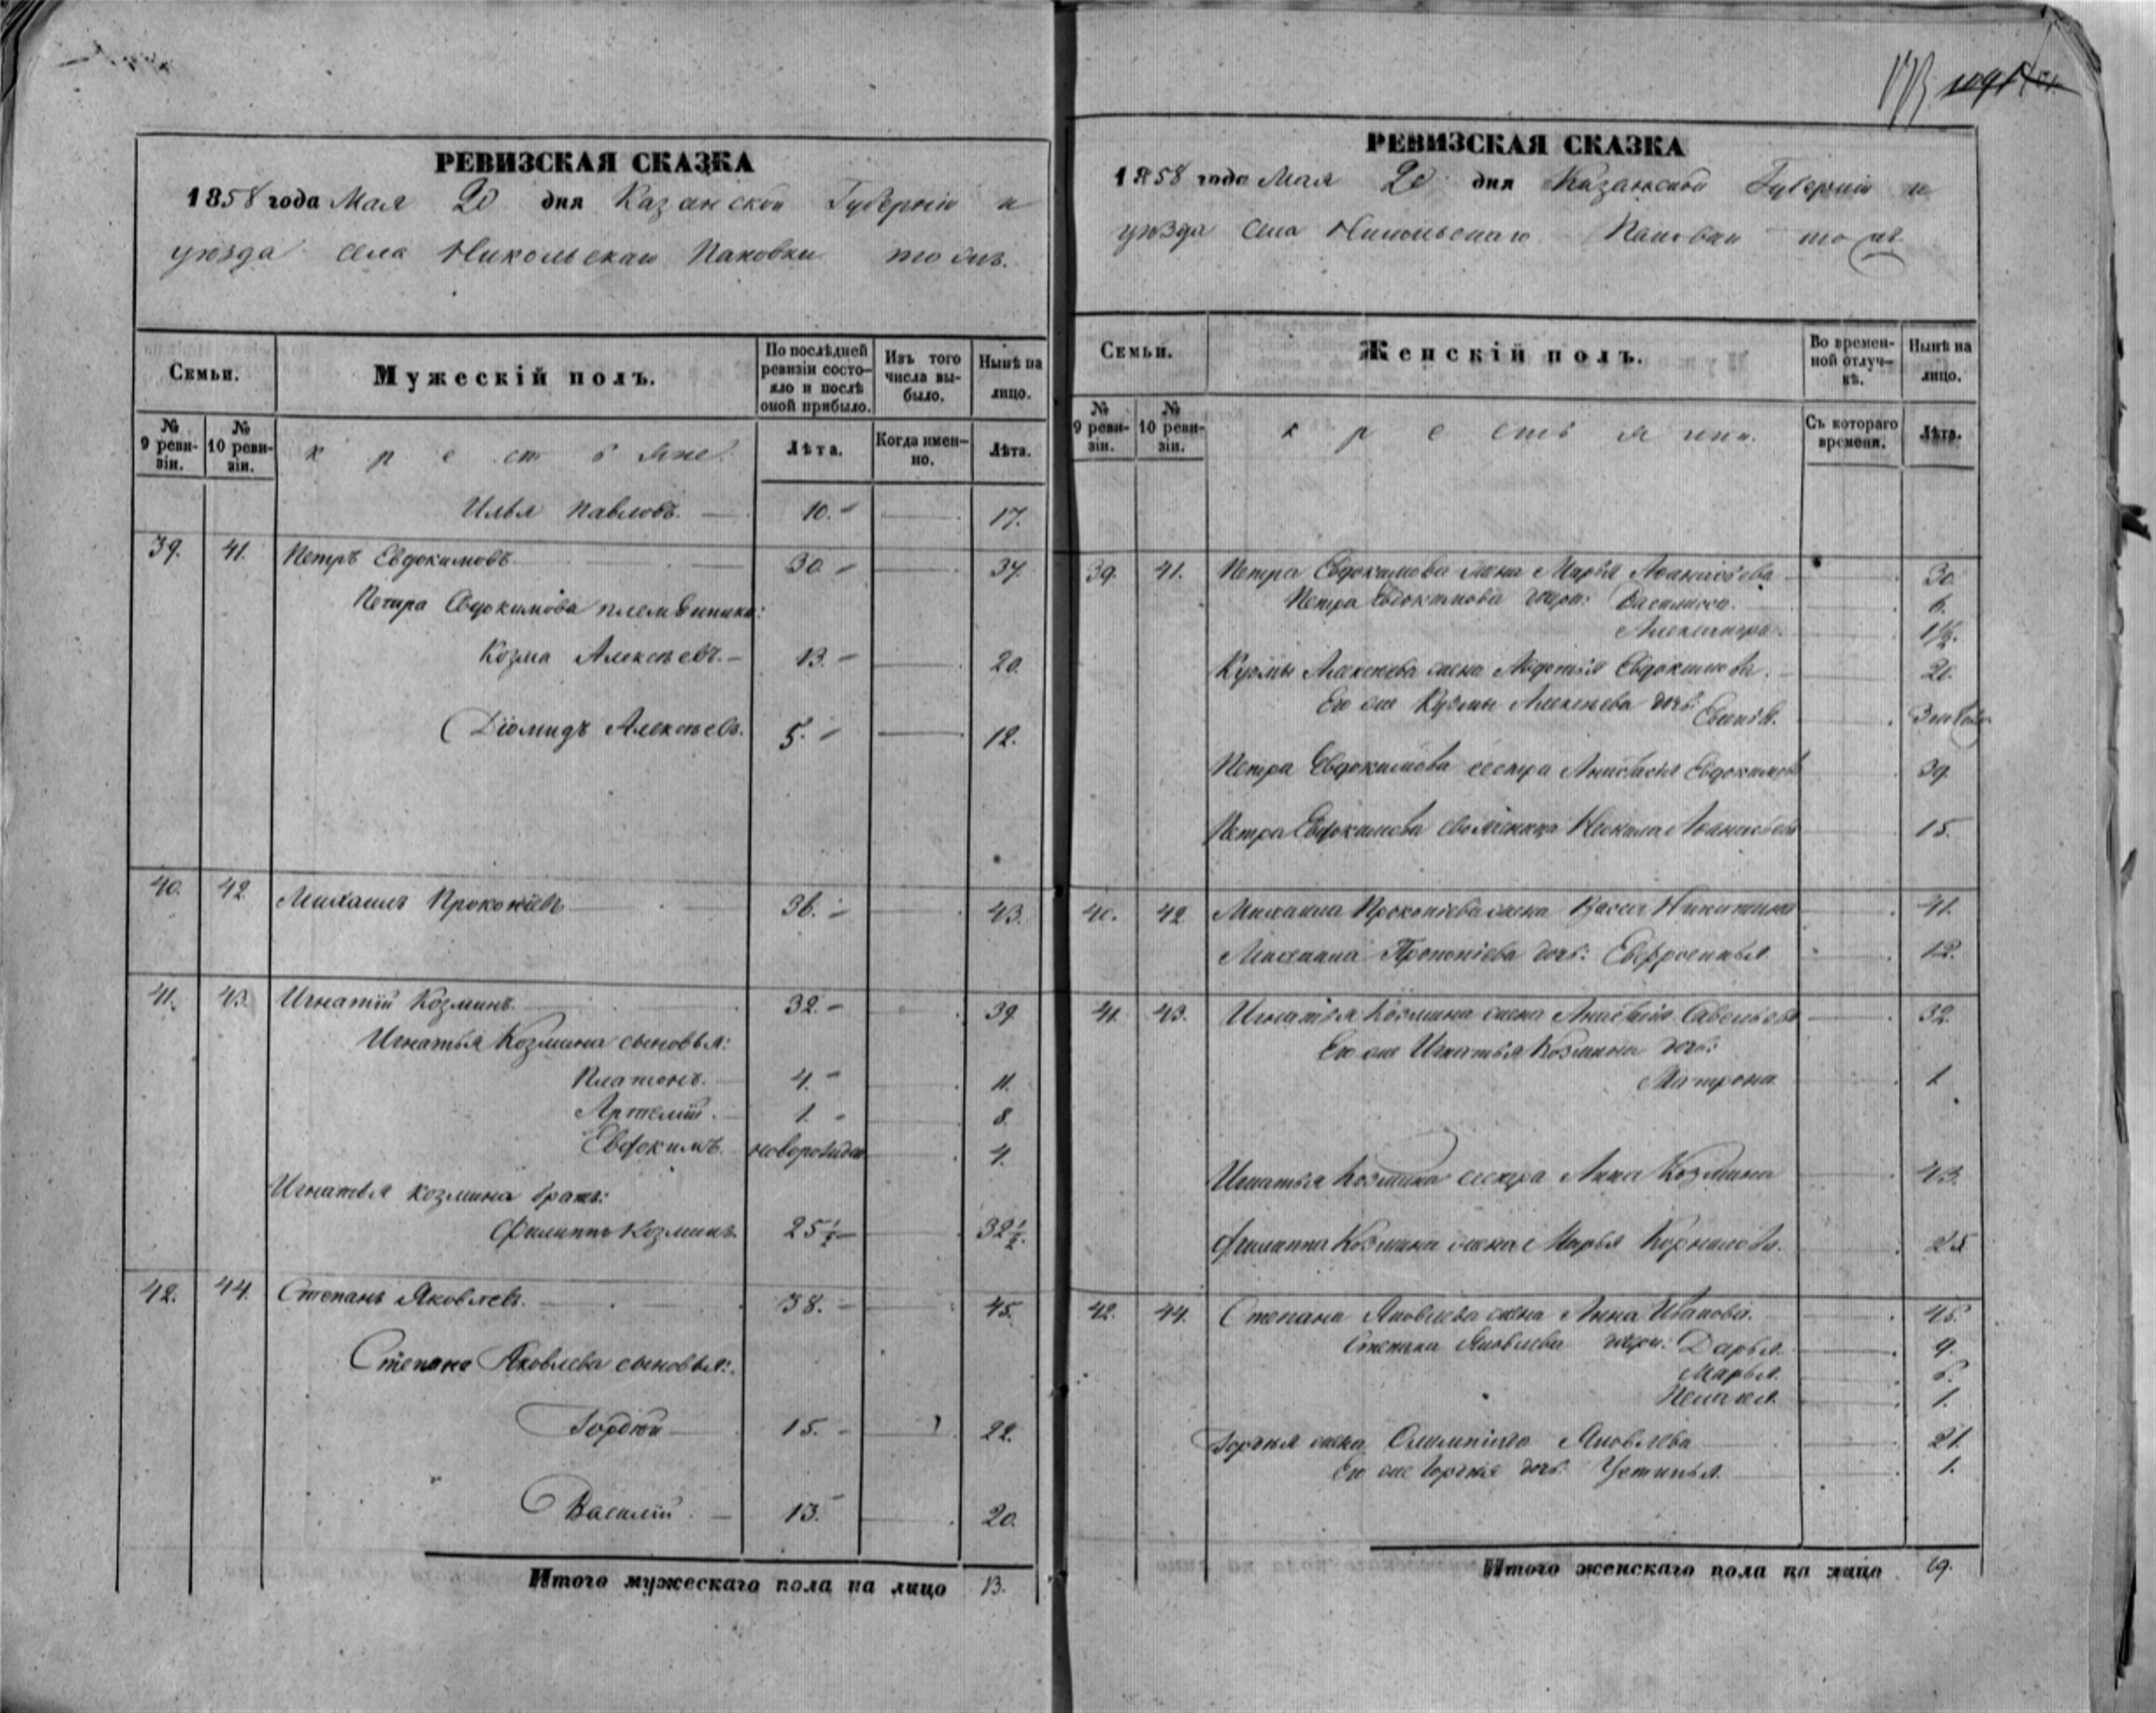 РЕВИЗСКАЯ СКАЗКА
1858 года Мая 20 дня Казанской Губерніи и
уѣзда села Никольскаго
Семьи.
Мужескій полъ.
По послѣдней ревизіи состояло и послѣ оной прибыло.
Изъ того числа выбыло.
Нынѣ на лицо.
№ 9 ревизіи.
№ 10 ревизіи.
крестьяне
Лѣта.
Когда именно.
Лѣта.
Илья Павловъ. 10. 17.
39. 41. Петръ Евдокимовъ 30 37.
Петра Евдокимова племянники:
Козма Алексѣевъ. 13. 20.
Діомидъ Алексѣевъ. 5. 12.
40. 42 Михаилъ Прокопіевъ 36. 43.
41. 43. Игнатій Козминъ. 32. 39
Игнатья Козмина сыновья:
Платонъ. 4. 11.
Артемій. 1. 8.
Евдокимъ. 4.
Игнатья Козмина братъ:
Филиппъ Козминъ. 25½ 32½.
42. 44. Степанъ Яковлевъ. 38. 45.
Степана Яковлева сыновья:
Гордѣй 15. 22.
Василій. 13. 20.
Итого мужескаго пола на лицо 13.
РЕВИЗСКАЯ СКАЗКА
1858 года Мая 20 дня Казанской Губерніи и
уѣзда села Никольскаго
Семьи.
Женскій полъ.
Во временной отлучкѣ.
Нынѣ на лицо.
№ 9 ревизіи.
№ 10 ревизіи.
Съ котораго времени.
Лѣта.
39. 41. Петра Евдокимова жена Марья Афанасьева 30
Петра Евдокимова дочери: Василисса. 6.
Александра. 1½.
Кузмы Алексѣева жена Авдотья Евдокимова.
Его же Кузмы Алексѣева дочь:
Петра Евдокимова сестра Анастасія Евдокимова 39.
Петра Евдокимова Афанасьева 15.
40. 42 Михаила Прокопіева жена Васса Никитина 41.
Михаила Прокопіева дочь: Евфросинья 12.
41. 43. Игнатья Козмина жена Савельева 32.
Его же Игнатья Козмина дочь:
Матрона 1
Игнатья Козмина сестра Анна Козмина 43.
Филиппа Козмина жена Марья Корнилова. 25
42. 44. Степана Яковлева жена Анна Иванова. 45.
Степана Яковлева дочери: Дарья. 9.
Марья. 6.
Пелагея. 1.
Гордѣя жена Яковлева 21.
Его же Гордѣя дочь: Устинья. 1.
Итого женскаго пола на лицо 19.